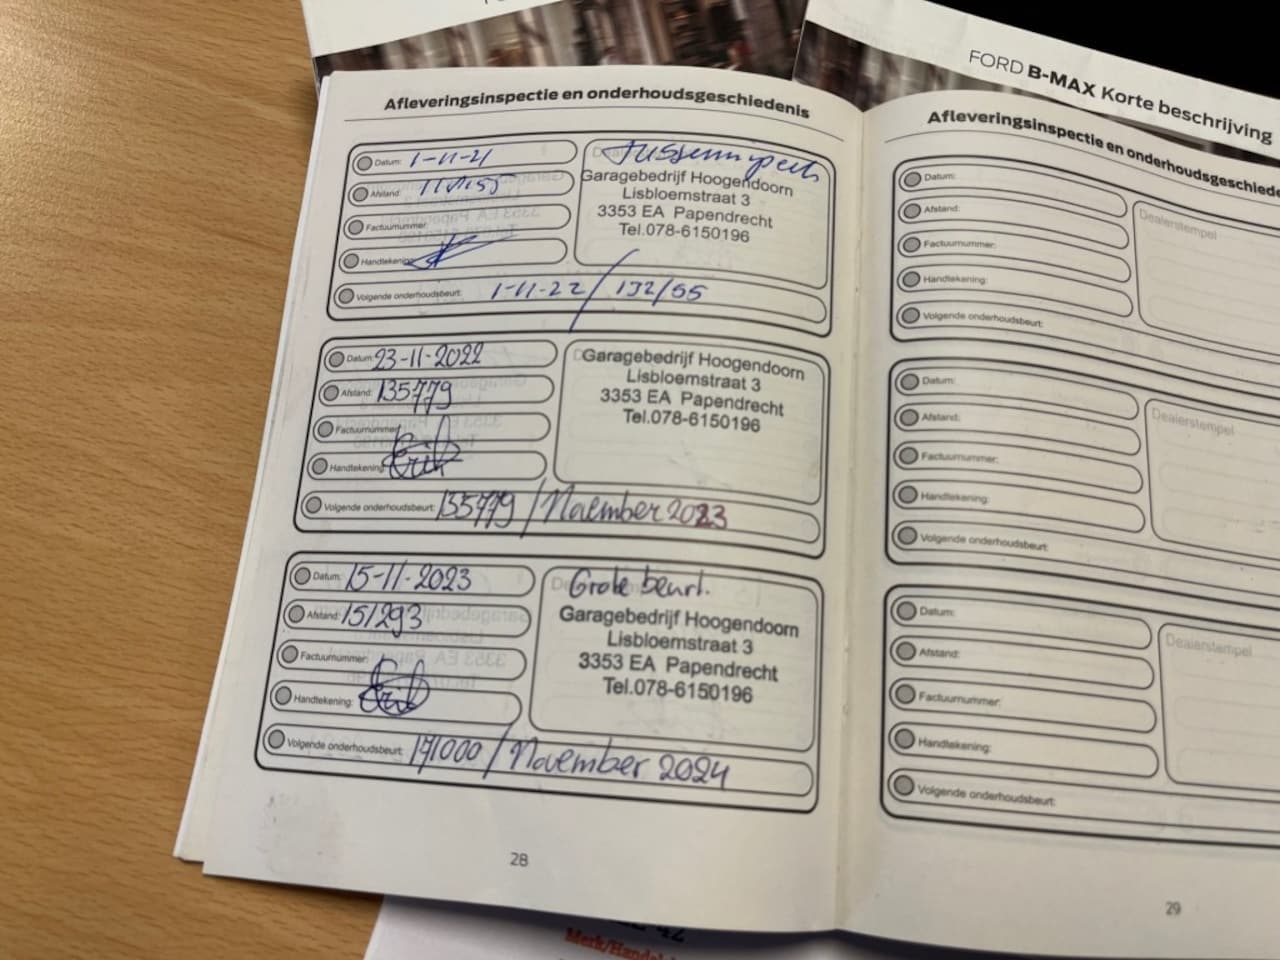 FORD B-MAX Korte beschrijving
Afleveringsinspectie en onderhoudsgeschiedenis
Datum: 1-11-21
Afstand:
Factuurnummer:
Handtekening:
Volgende onderhoudsbeurt: 1-11-22 / 132155
Garagebedrijf Hoogendoorn
Lisbloemstraat 3
3353 EA Papendrecht
Tel.078-6150196
Datum: 23-11-2022
Afstand: 135779
Factuurnummer:
Handtekening:
Volgende onderhoudsbeurt: 135779 / November 2023
Garagebedrijf Hoogendoorn
Lisbloemstraat 3
3353 EA Papendrecht
Tel.078-6150196
Datum: 15-11-2023
Afstand: 151293
Factuurnummer:
Handtekening:
Volgende onderhoudsbeurt: 171000 / November 2024
Grote beurt.
Garagebedrijf Hoogendoorn
Lisbloemstraat 3
3353 EA Papendrecht
Tel.078-6150196
28
Afleveringsinspectie en onderhoudsgeschiede
Datum:
Afstand:
Factuurnummer:
Handtekening:
Volgende onderhoudsbeurt:
Dealerstempel
Datum:
Afstand:
Factuurnummer:
Handtekening:
Volgende onderhoudsbeurt:
Dealerstempel
Datum:
Afstand:
Factuurnummer:
Handtekening:
Volgende onderhoudsbeurt:
Dealerstempel
29